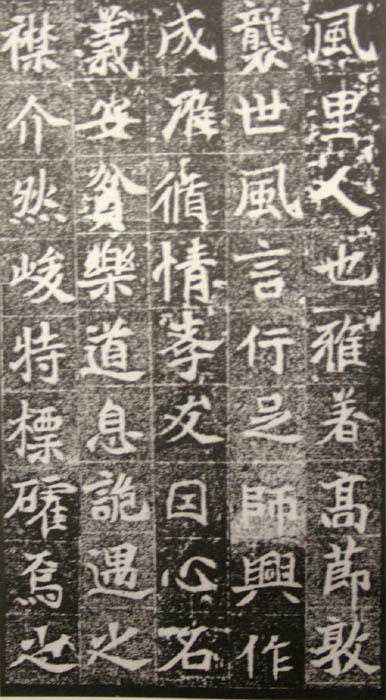 風里人也雅着髙節敦
襲世風言行足師興作
成准循情孝友囙心名
義安貧樂道息詭遇之
襟介然峻特標礭焉之